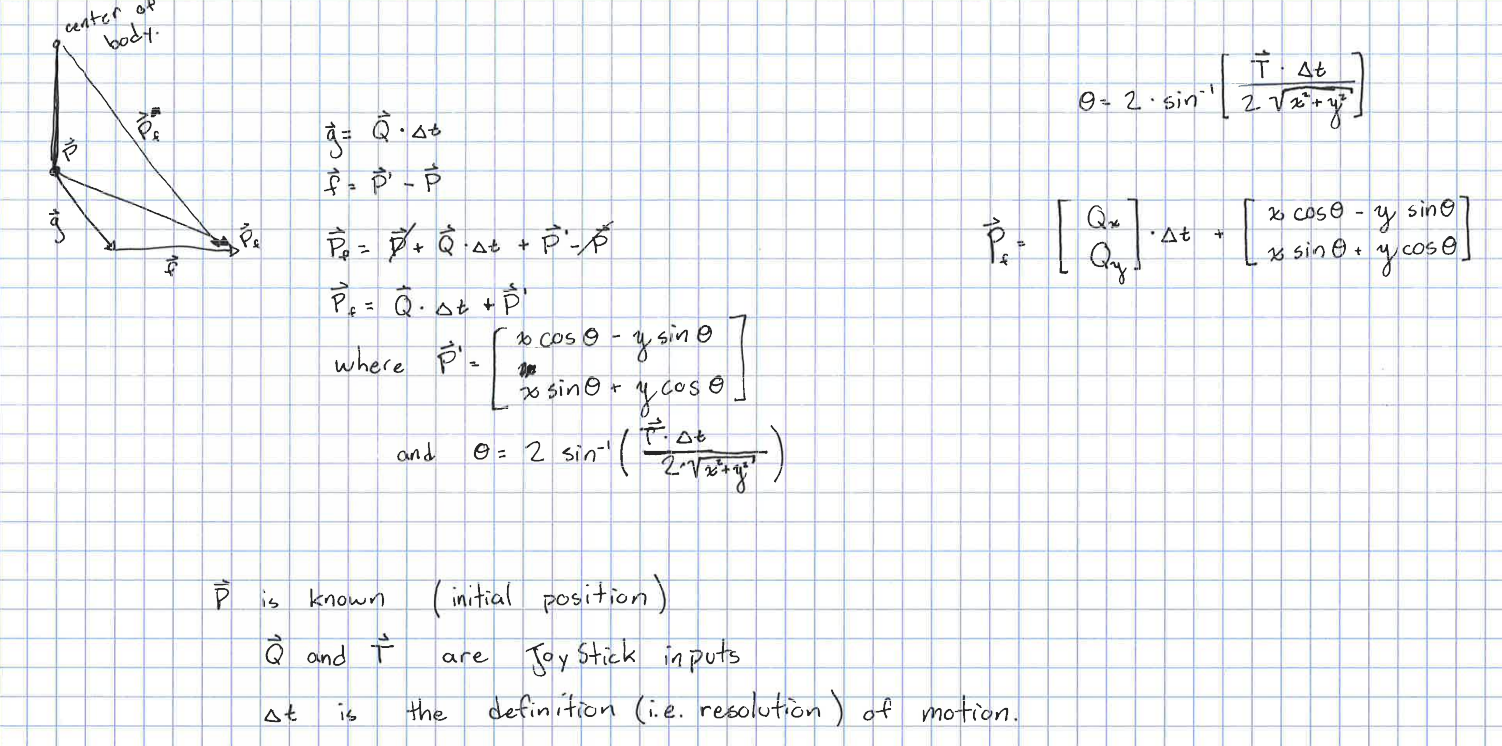 center of
body.
P⃗f
P⃗
g⃗
f⃗
P⃗f
g⃗ = Q⃗ · Δt
f⃗ = P⃗' - P⃗
P⃗f = P⃗ + Q⃗ · Δt + P⃗' - P⃗
P⃗f = Q⃗ · Δt + P⃗'
where P⃗' = [ x cosθ - y sinθ
x sinθ + y cosθ ]
and θ = 2 sin⁻¹ ( T⃗ · Δt / 2·√(x²+y²) )
θ = 2 · sin⁻¹ [ T⃗ · Δt / 2 √(x²+y²) ]
P⃗f = [ Qx Qy ] · Δt + [ x cosθ - y sinθ
x sinθ + y cosθ ]
P⃗ is known (initial position)
Q⃗ and T⃗ are JoyStick inputs
Δt is the definition (i.e. resolution) of motion.